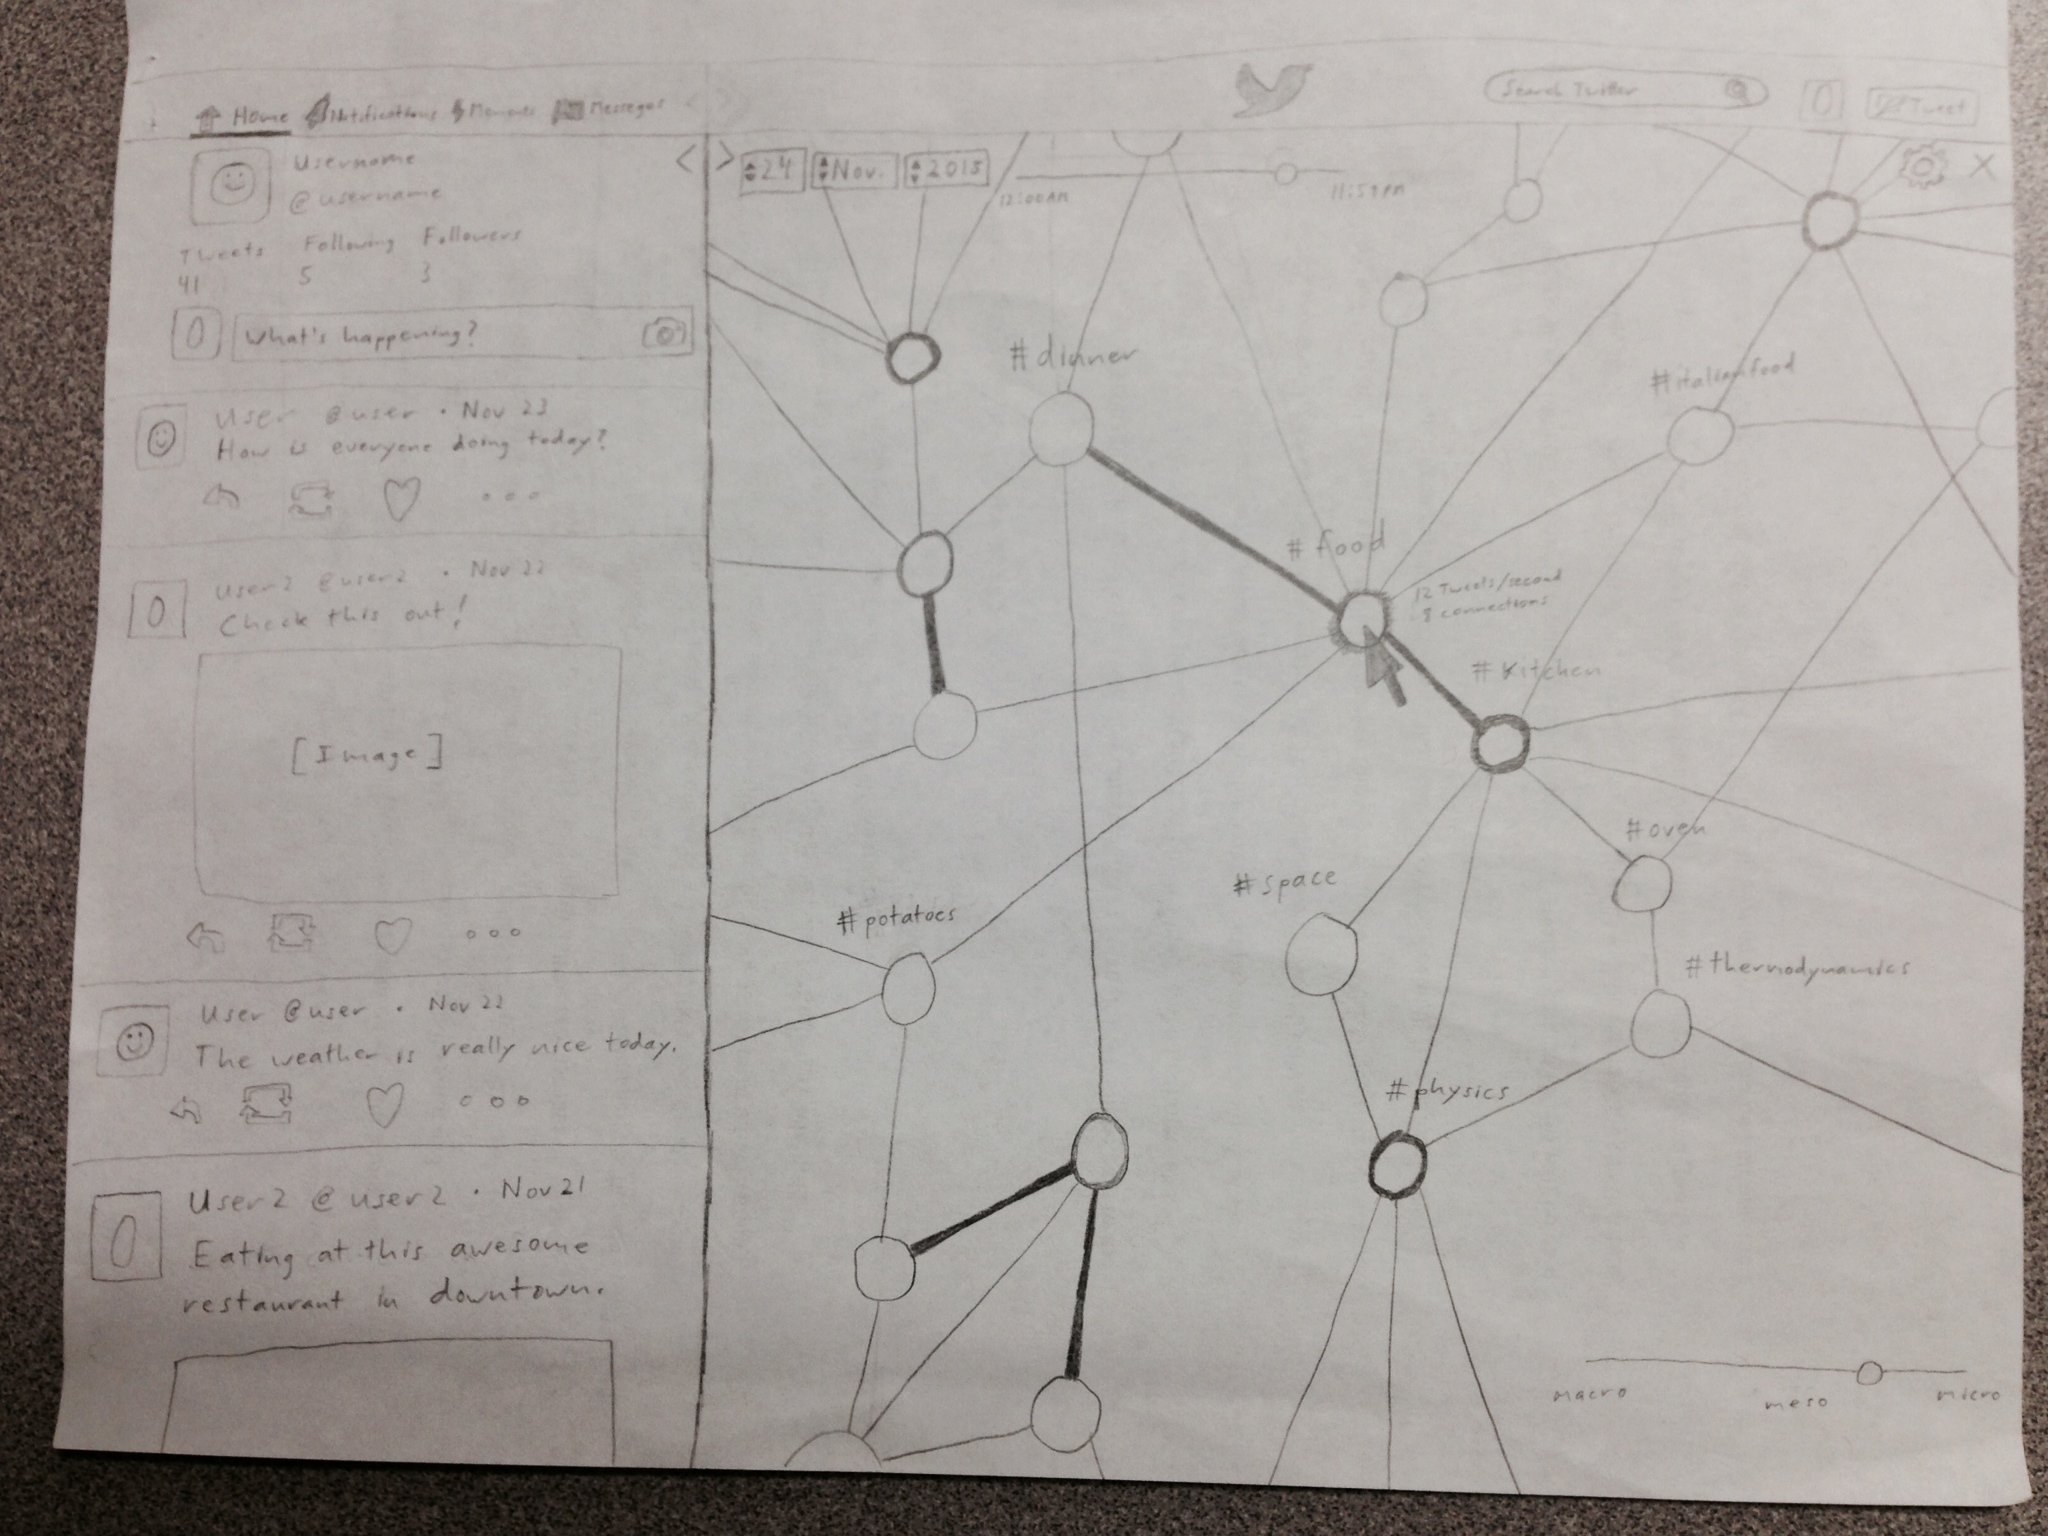 Home Notifications Moments Messages
Search Twitter
Tweet
Username
@username
Tweets Following Followers
41 5 3
What's happening?
User @user · Nov 23
How is everyone doing today?
User2 @user2 · Nov 22
Check this out!
[Image]
User @user · Nov 22
The weather is really nice today.
User2 @user2 · Nov 21
Eating at this awesome
restaurant in downtown.
< >
24 Nov. 2015
12:00AM 11:59PM
X
#dinner
#italianfood
#food
12 Tweets/second
8 connections
#kitchen
#oven
#space
#potatoes
#thermodynamics
#physics
macro meso micro